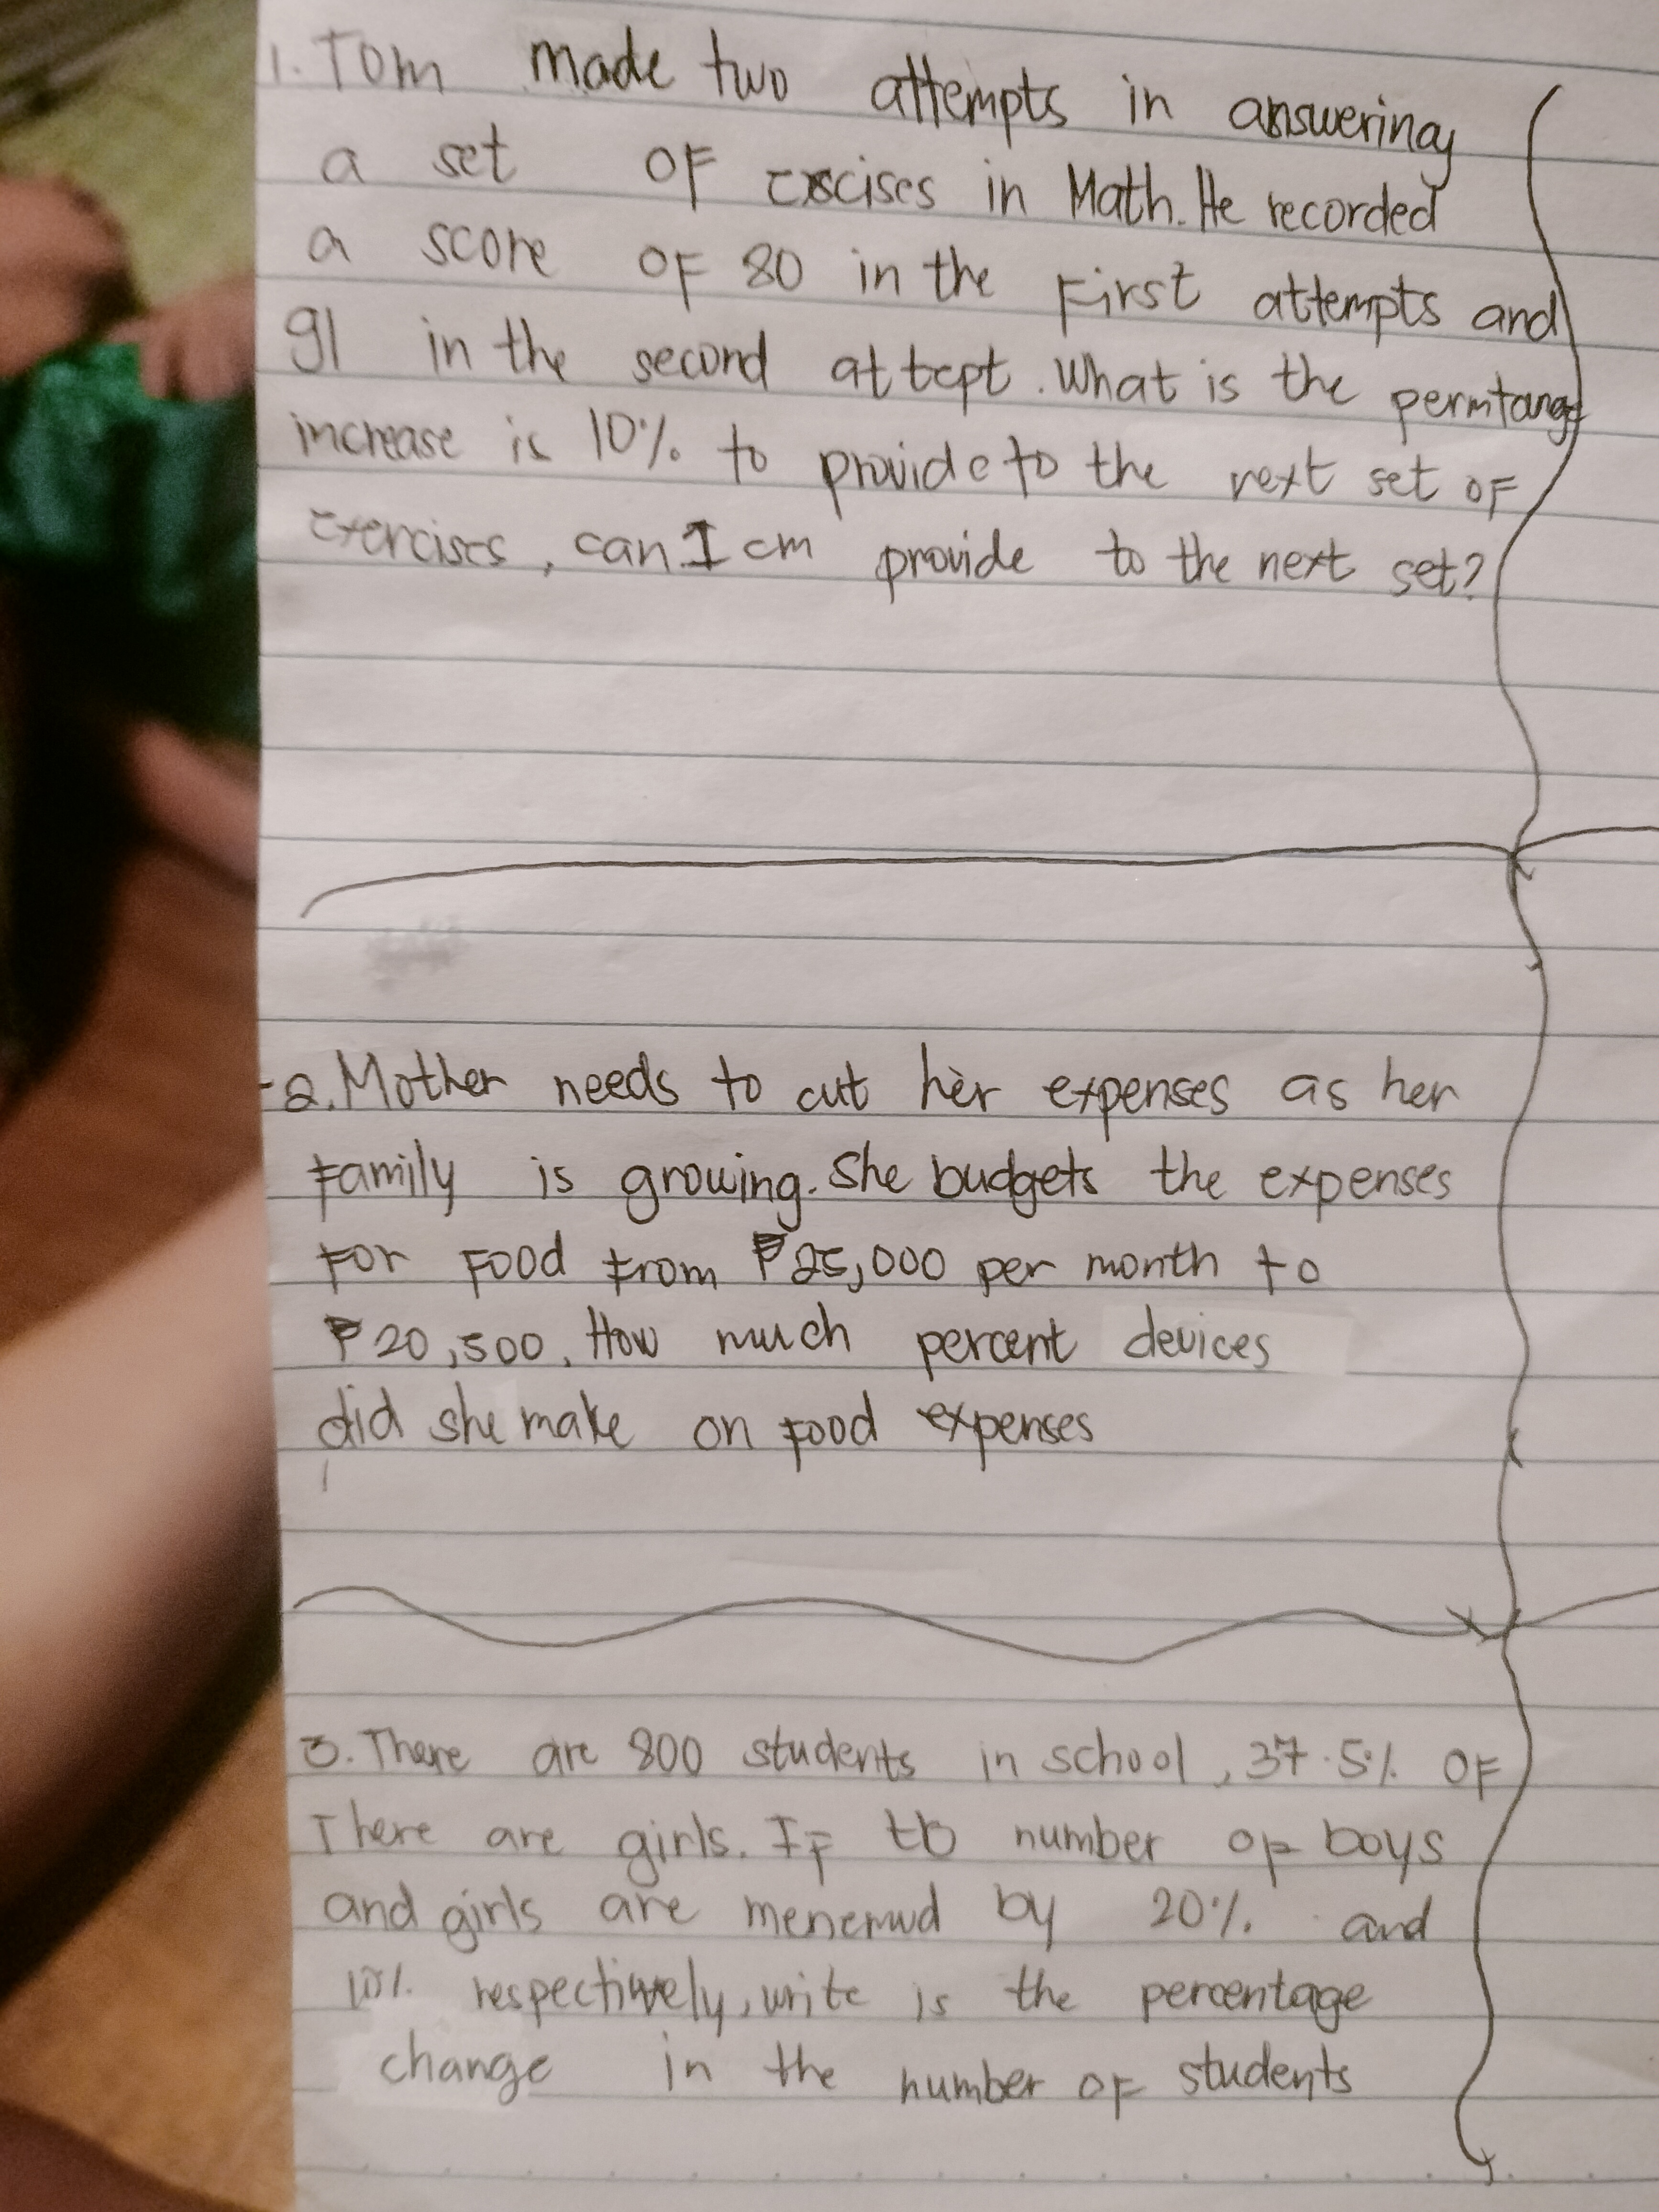 1. Tom made two attempts in answering
a set OF excises in Math. He recorded
a score OF 80 in the First attempts and
91 in the second attept. What is the permtange
increase is 10% to provide to the next set OF
exercises, can I cm provide to the next set?
2. Mother needs to cut her expenses as her
Family is growing. She budgets the expenses
For Food From ₱25,000 per month to
₱20,500. How much percent devices
did she make on Food expenses
3. There are 800 students in school, 37.5% OF
There are girls. IF number OF boys
and girls are by 20% and
10% respectively, write is the percentage
change in the number OF students